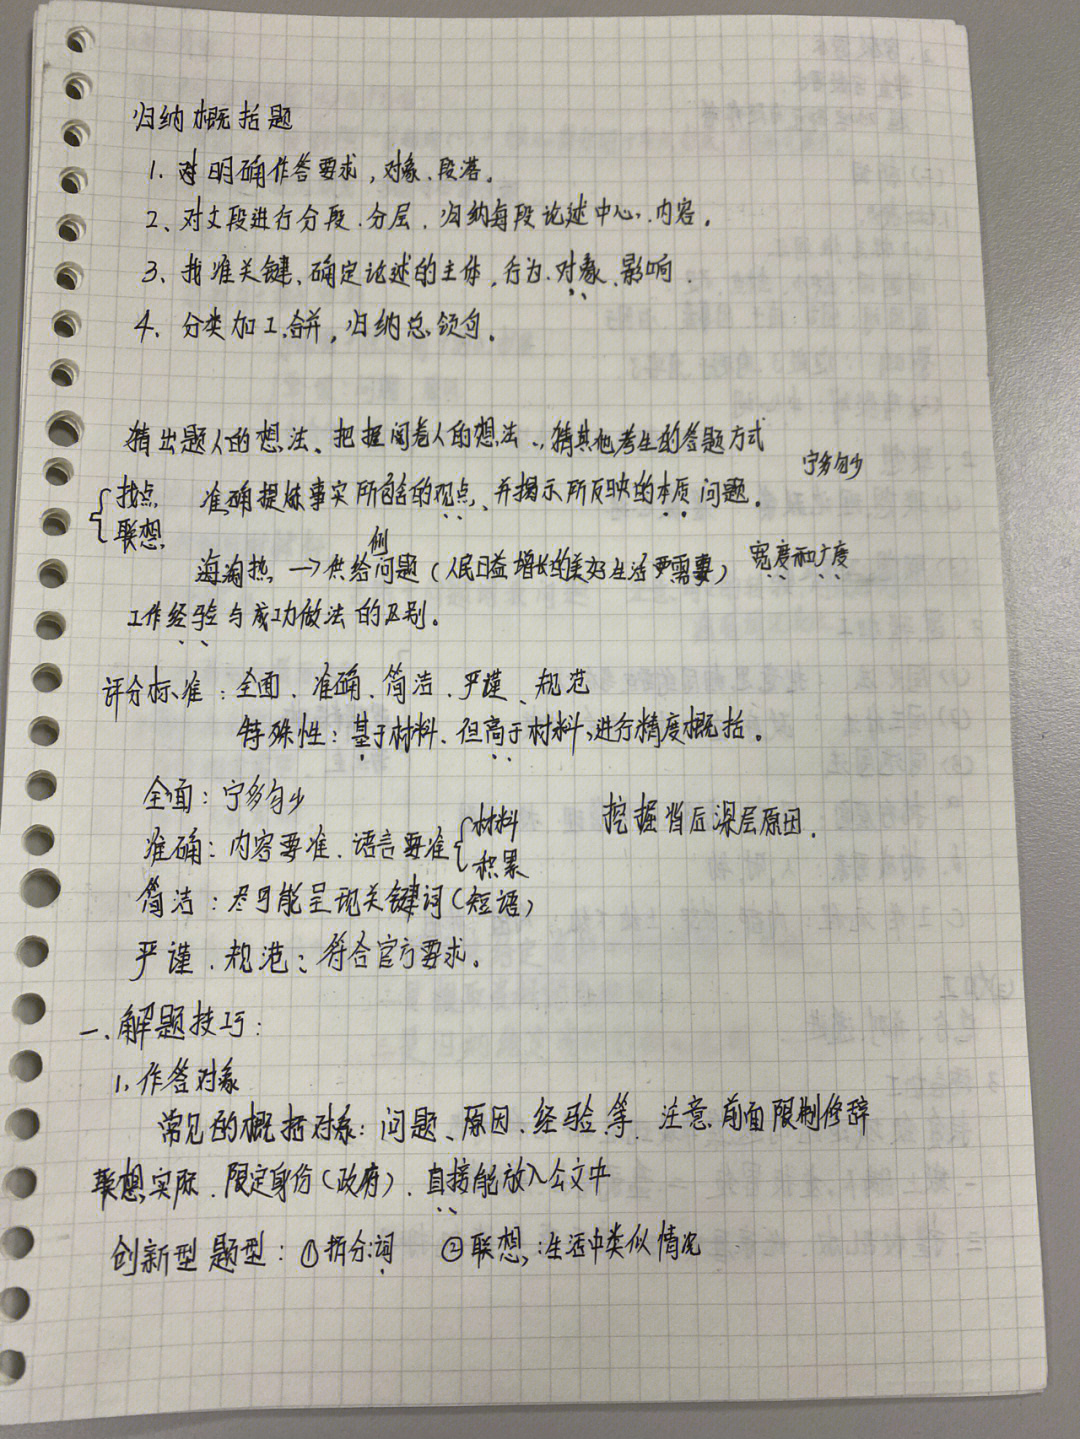 归纳概括题
1. 对明确作答要求,对象、段落。
2、对文段进行分段、分层、归纳每段论述中心、内容。
3、找准关键、确定论述的主体,行为、对象、影响
4、分类加工、合并,归纳总领句。
猜出题人的想法、把握阅卷人的想法、猜其他考生的答题方式
宁多勿少
找点 准确提炼事实所包含的观点、并揭示所反映的本质问题。
联想
例
海淘热 → 供给问题(人民日益增长的美好生活需要) 宽度和广度
工作经验与成功做法的区别。
评分标准:全面、准确、简洁、严谨、规范
特殊性:基于材料、但高于材料,进行精度概括。
全面:宁多勿少
准确:内容要准、语言要准 材料 挖掘背后深层原因。
积累
简洁:尽可能呈现关键词(短语)
严谨、规范:符合官方要求。
一、解题技巧:
1. 作答对象
常见的概括对象:问题、原因、经验、等 注意前面限制修辞
联想实际、限定身份(政府)、直接能放入公文中
创新型题型:①拆分词 ②联想:生活中类似情况